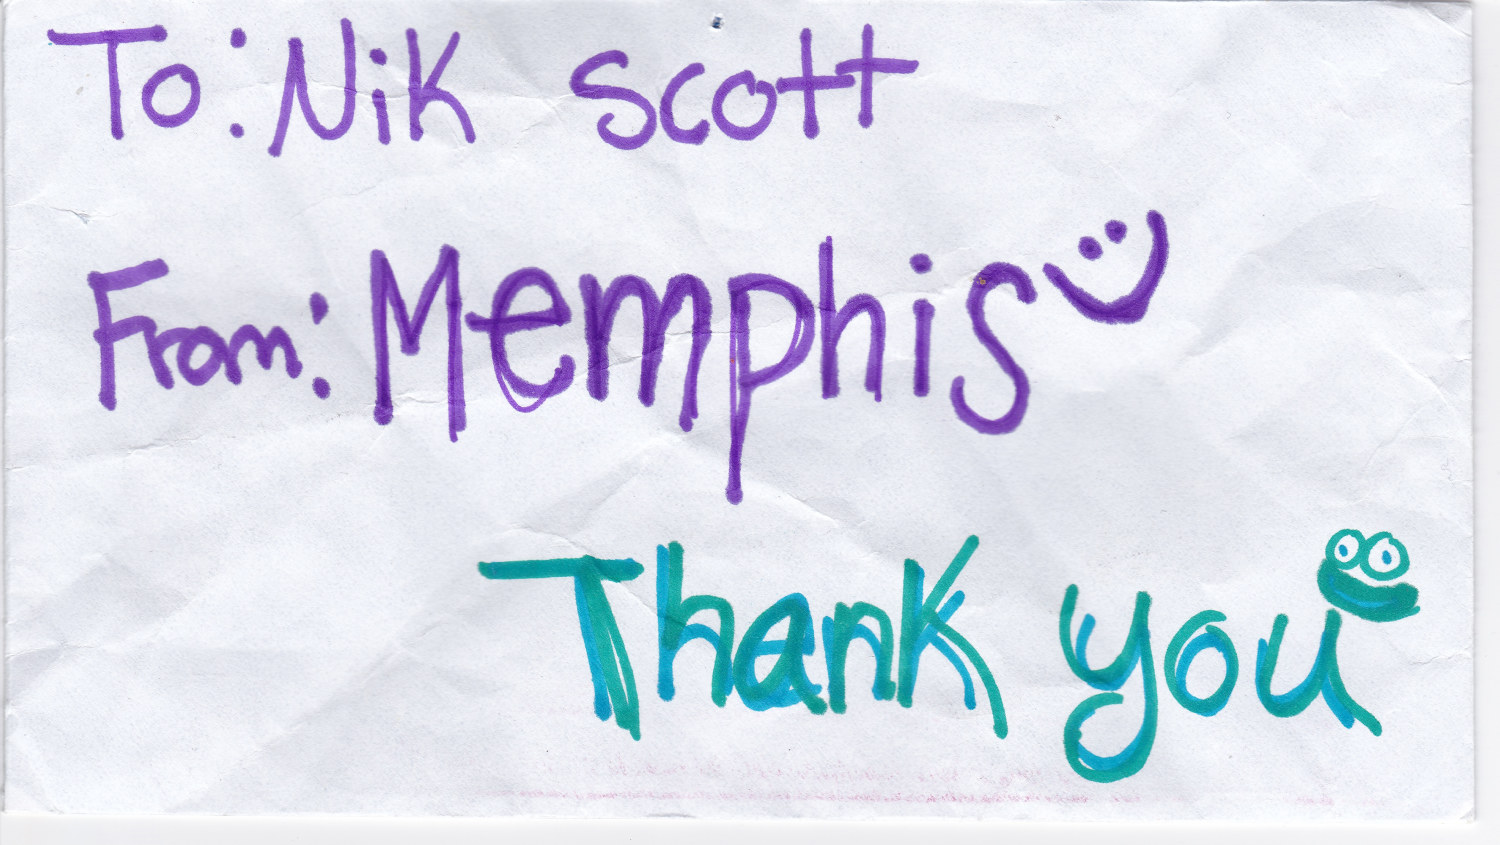 To: Nik Scott
From: Memphis
Thank you